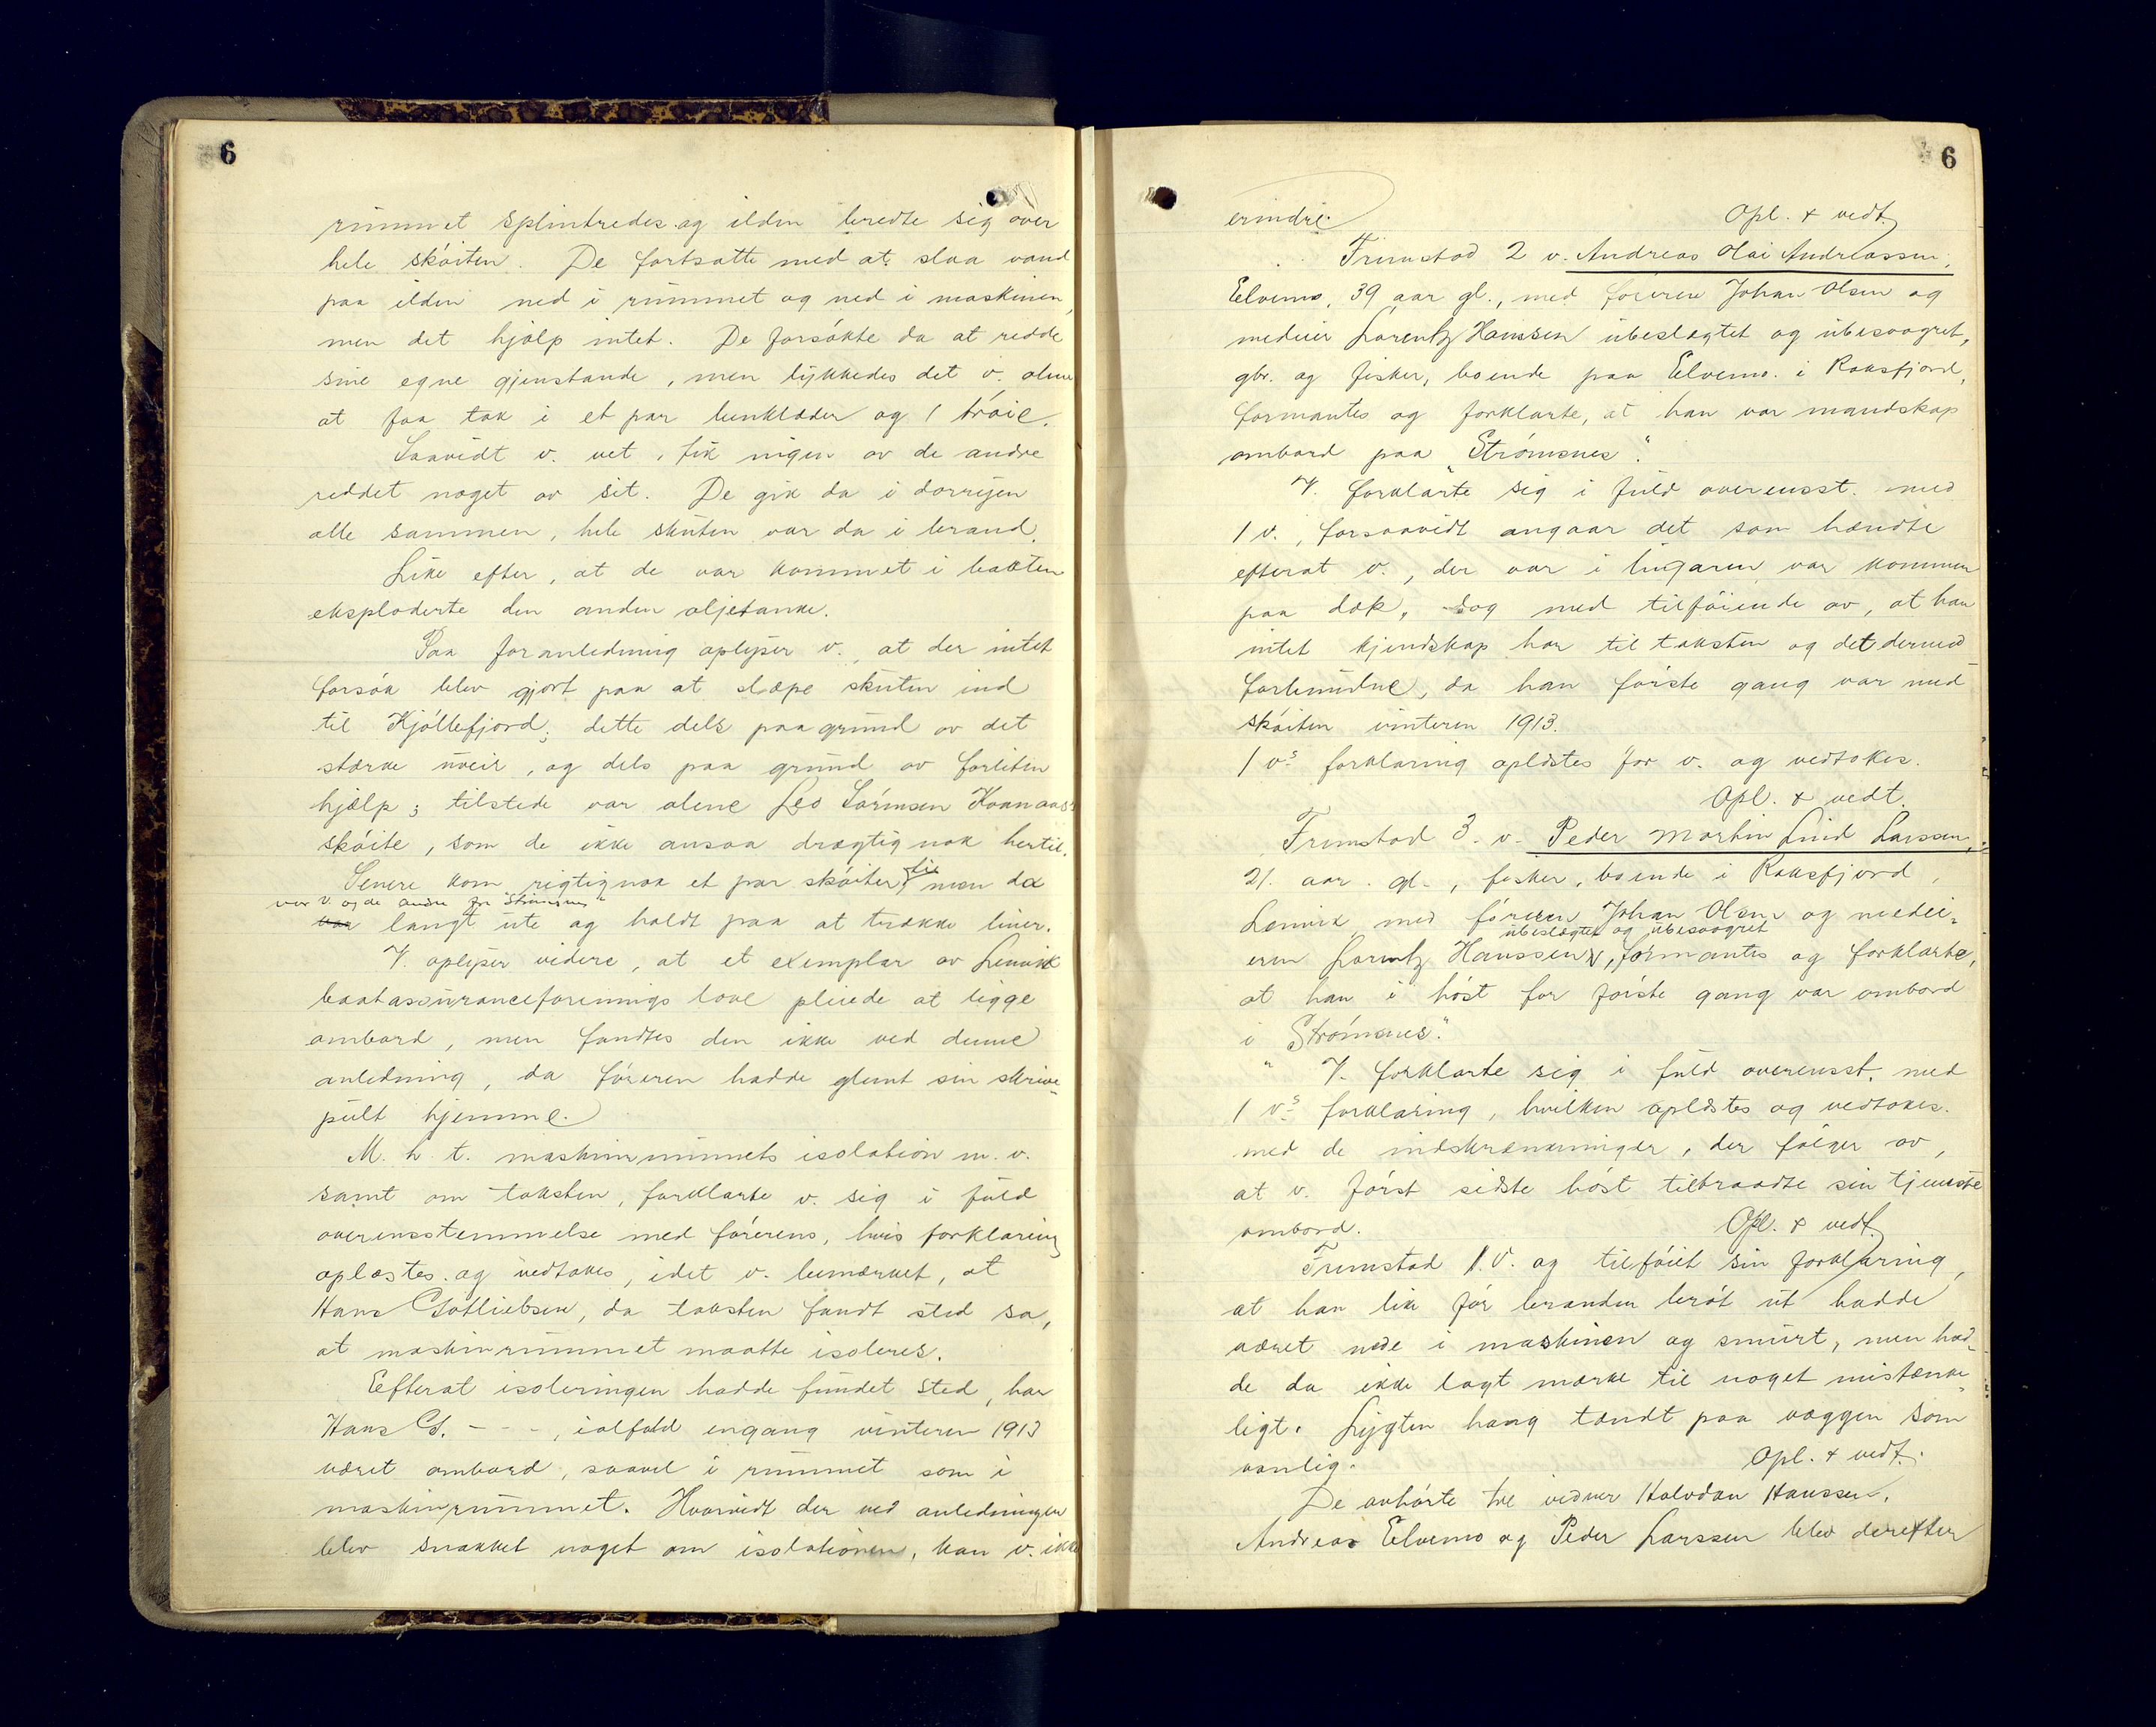 6
rummet splintredes og ilden bredte sig over
hele skøiten. De fortsatte med at slaa vand
paa ilden ned i rummet og ned i maskinen,
men det hjalp intet. De forsøkte da at redde
sine egne gjenstande, men lykkedes det v. alene
at faa tak i et par benklæder og 1 trøie.
Saavidt v. vet, fik ingen av de andre
reddet noget av sit. De gik da i dorryen
alle sammen, hele skuten var da i brand.
Like efter, at de var kommet i baaten
eksploderte den anden oljetanke.
Paa foranledning oplyser v., at der intet
forsøk blev gjort paa at slæpe skuten ind
til Kjøllefjord; dette dels paa grund av det
stærke uveir, og dels paa grund av forliten
hjælp; tilstede var alene Leo Sørensen Kvanaas's
skøite, som de ikke ansaa drægtig nok hertil.
Senere kom rigtignok et par skøiter til men da
var v. og de andre fra "Strømsnes"
var langt ute og holdt paa at trække liner.
V. oplyser videre, at et exemplar av Lenvik
baatassuranceforenings love pleiede at ligge
ombord, men fandtes den ikke ved denne
anledning, da føreren hadde glemt sin skrive=
pult hjemme.
M. h. t. maskinrummets isolation m. v.
samt om taksten, forklarte v. sig i fuld
overensstemmelse med førerens, hvis forklaring
oplæstes og vedtokes, idet v. bemerket, at
Hans Gotliebsen, da taksten fandt sted sa,
at maskinrummet maatte isoleres.
Efterat isoleringen hadde fundet sted, har
Hans G. - - -, ialfald engang vinteren 1913
været ombord, saavel i rummet som i
maskinrummet. Hvorvidt der ved anledningen
blev snakket noget om isolationen, kan v. ikke
6
erindre. Opl. & vedt.
Fremstod 2 v. Andreas Olai Andreassen,
Elvemo, 39 aar gl., med føreren Johan Olsen og
medeier Lorentz Hanssen ubeslægtet og ubesvogret,
gbr. og fisker, boende paa Elvemo i Roksfjord,
formantes og forklarte, at han var mandskap
ombord paa "Strømsnes".
V. forklarte sig i fuld overensst. med
1 v., forsaavidt angaar det som hændte
efterat v., der var i lugaren var kommen
paa dæk, dog med tilføiende av, at han
intet kjendskap har til taksten og det dermed
forbundne, da han første gang var med
skøiten vinteren 1913.
1 v's forklaring oplæstes for v. og vedtokes.
Opl. & vedt.
Fremstod 3. v. Peder Martin Lind Larssen,
21. aar gl., fisker, boende i Roksfjord,
Lenvik, med føreren Johan Olsen og medei=
ubeslægtet og ubesvogret
eren Lorentz Hanssen, formantes og forklarte,
at han i høst for første gang var ombord
i "Strømsnes".
V. forklarte sig i fuld overensst. med
1 v's forklaring, hvilken oplæstes og vedtokes.
med de indskrænkninger, der følger av,
at v. først sidste høst tilbraadte sin tjeneste
ombord. Opl. & vedt.
Fremstod 1. v. og tilføiet sin forklaring,
at han like før branden brøt ut hadde
været nede i maskinen og smurt, men had=
de da ikke lagt mærke til noget mistænke=
ligt. Lygten hang tændt paa væggen som
vanlig. Opl. & vedt.
De avhørte tre vidner Halvdan Hanssen,
Andreas Elvemo og Peder Larssen blev derefter